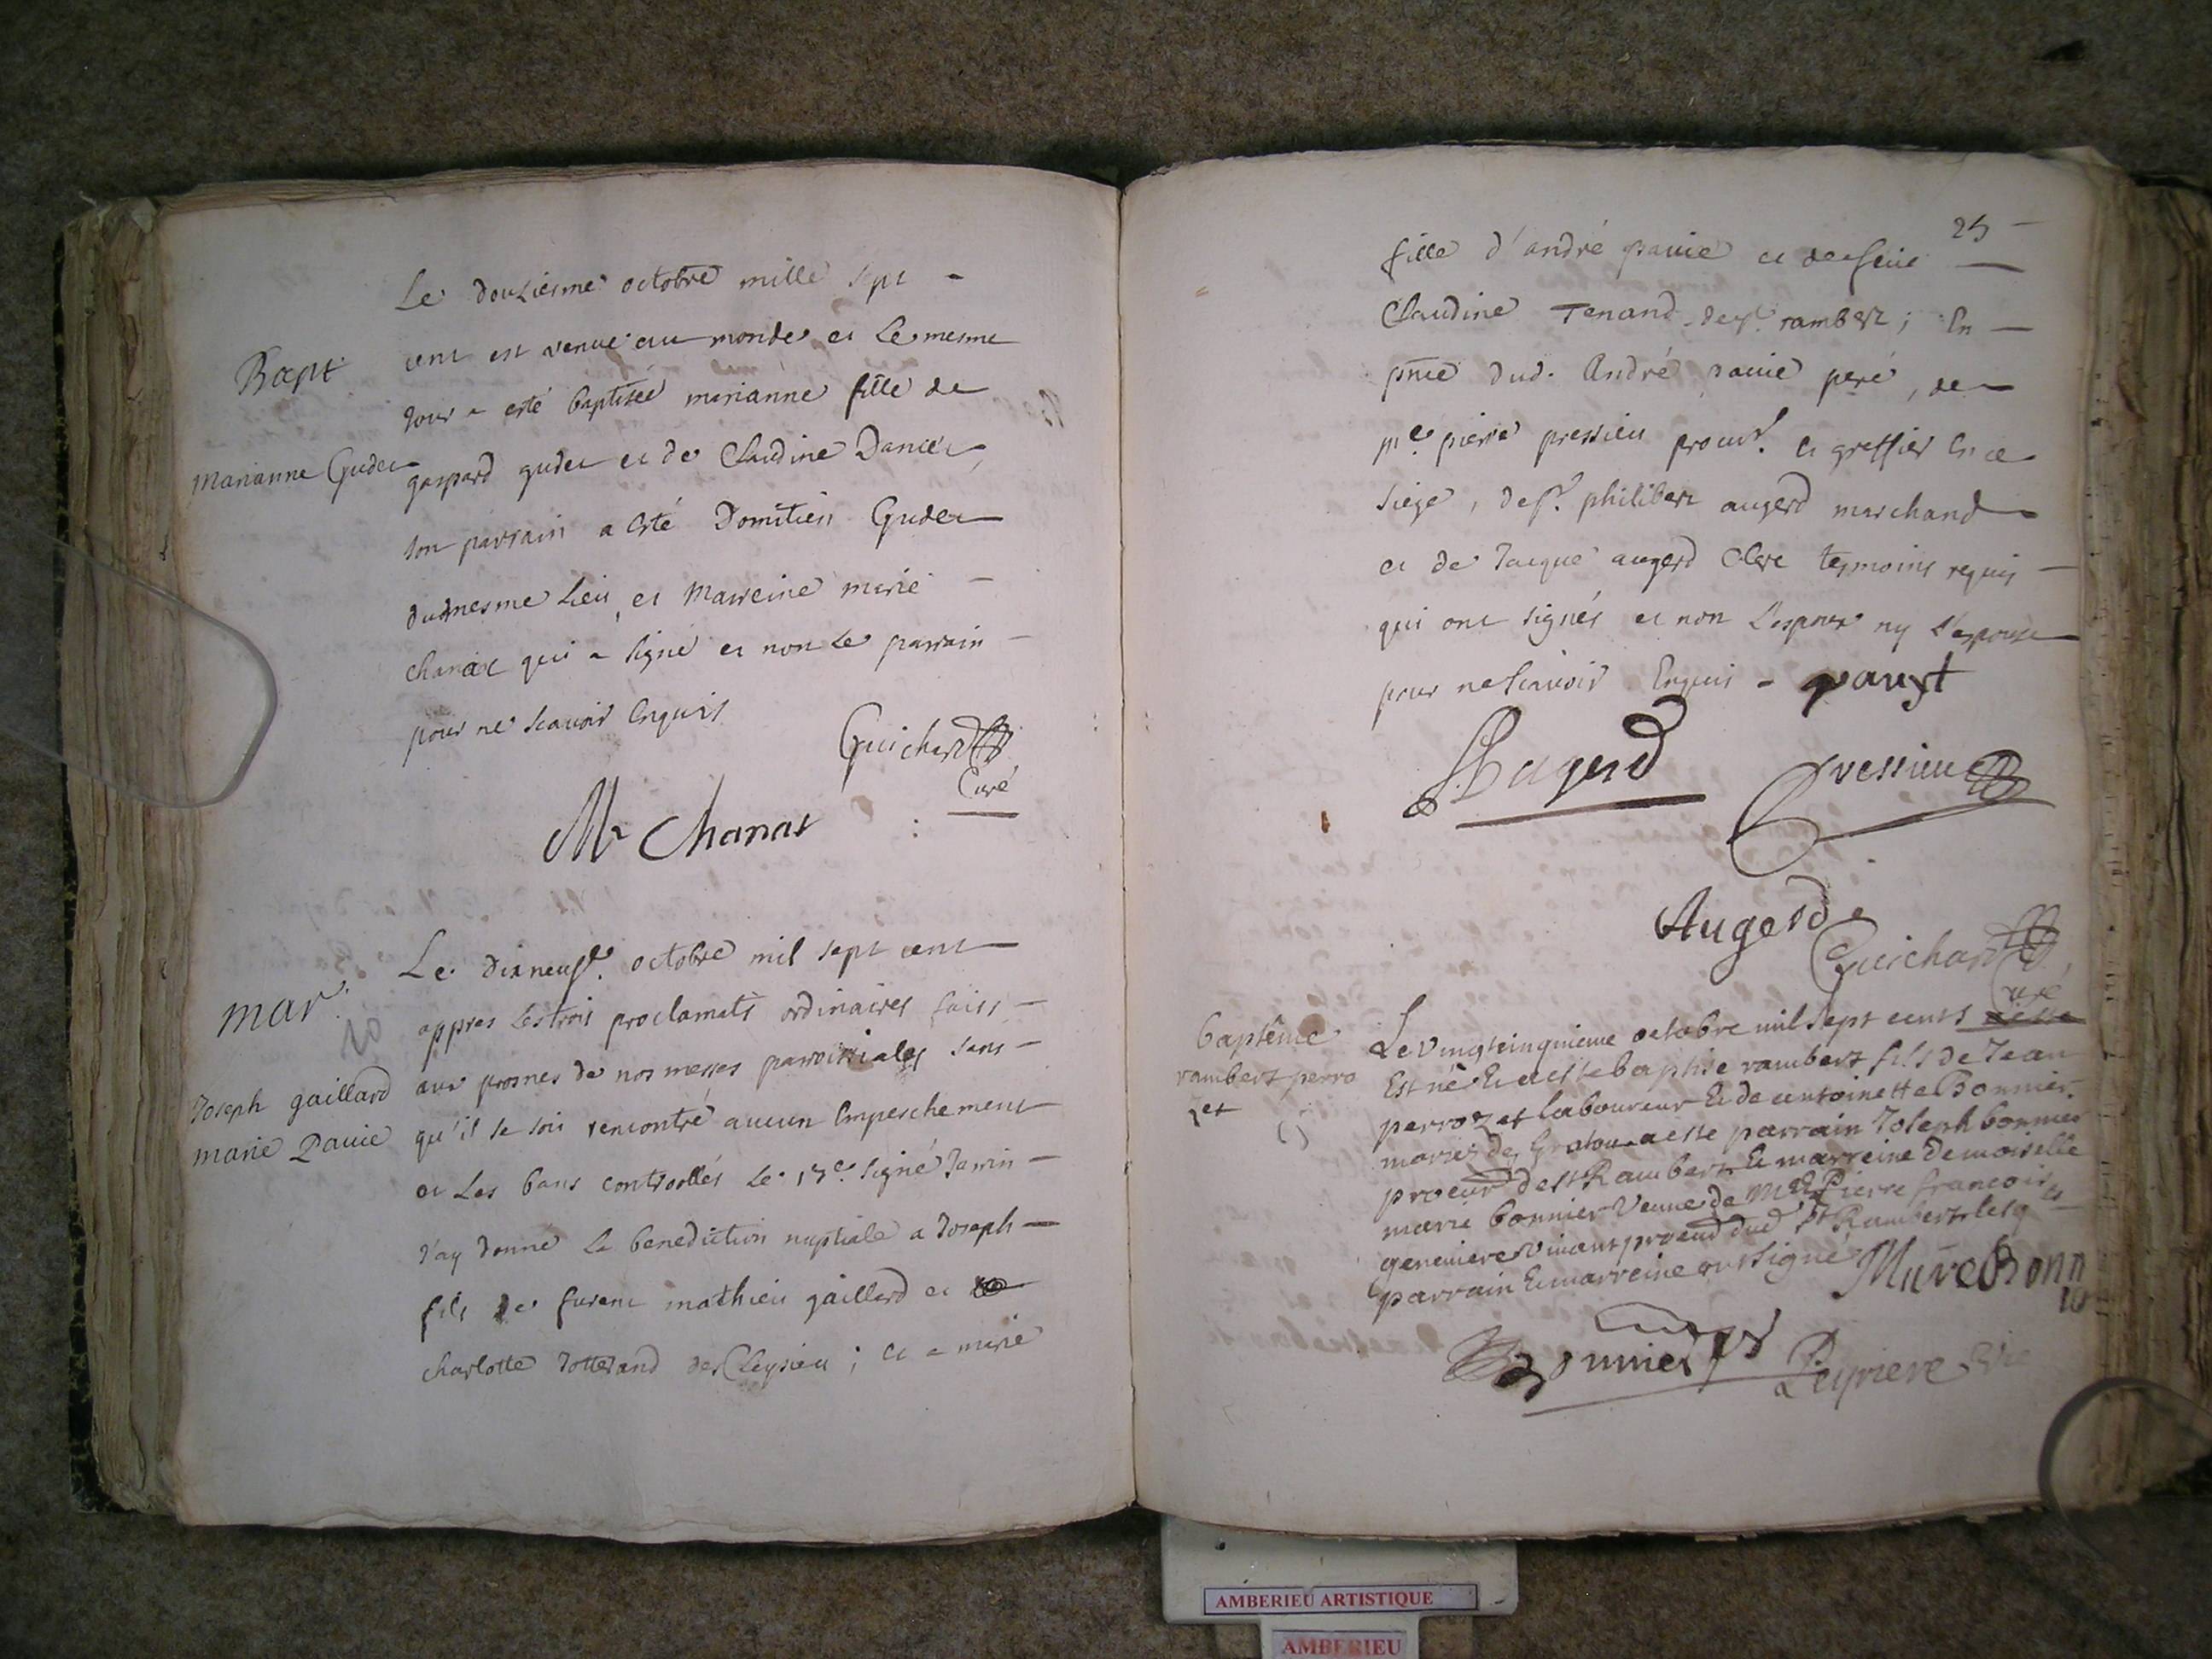 Bapt
Marianne Gudet
Le douziesme octobre mille sept -
cent est venue au monde et le mesme
Jour a esté baptisée marianne fille de
gaspard gudet et de Claudine Dancet
son parrain a esté Domitien Gudet
du mesme Lieu, et Marreine marie -
chanax qui a signé et non le parrain -
pour ne scavoir Enquis
Guichard
Curé
Mr Chanas
mar.
20
Joseph gaillard
marie Pavie
Le dixneufe. octobre mil sept cent
appres les trois proclamats ordinaires faits -
aux prosnes de nos messes parroissiales sans -
qu'il se soit rencontré aucun Empeschement
et Les bans controollés Le 17e. signé Janin -
J'ay donné la benediction nuptiale a Joseph -
fils de furent mathieu gaillard et
charlotte Jotterand de Cleysieu ; et a marie
25 -
fille d'andré pavie et de feüe -
Claudine Tenand de st. rambert ; En -
pnce dud. André pavie pere, de -
me. pierre pressieu procur. et greffier En ce
siege, de sr. philibert augerd marchand
et de Jacque augerd Clerc tesmoins requis -
qui ont signés et non L'espoux ny L'espouse
pour ne scavoir Enquis -
Augerd
Pressieu
Augerd
Guichard
curé
baptême
rambert perro
zet
Le vingtcinquieme octobre mil sept cents
Est né Et a esté baptisé rambert fils de Jean
perrozet laboureur Et de antoinette Bonnier
mariés de a esté parrain Joseph bonnier
procur de st Rambert Et marreine demoiselle
marie bonnier Veuve de Me Pierre francois
geneviere vivant procur dud st Rambert lesqls
parrain Et marreine ont signé Marie Bonn
ie
Bonnier
Peyriere
AMBERIEU ARTISTIQUE
AMBERIEU